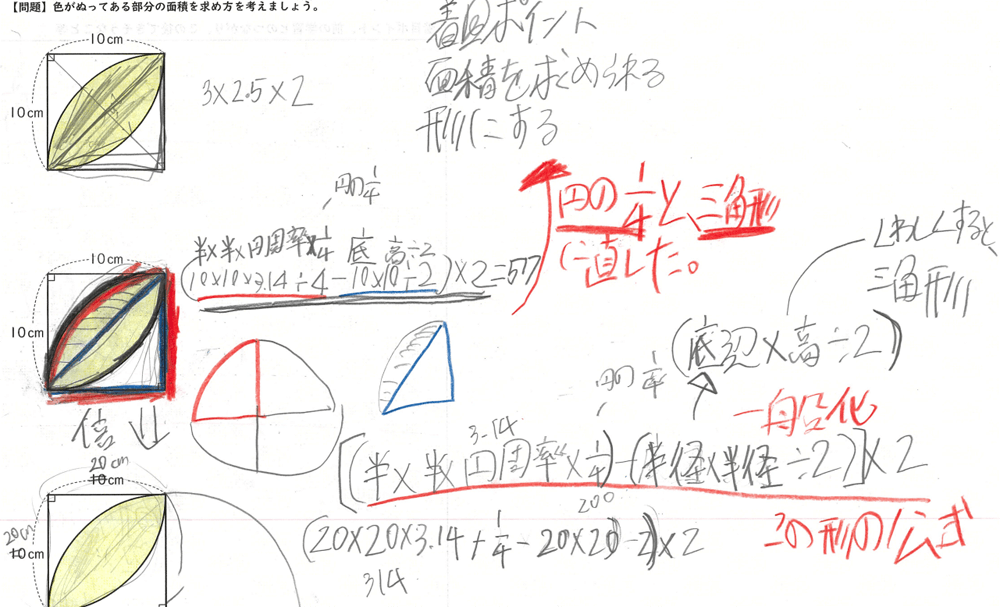 【問題】色がぬってある部分の面積を求め方を考えましょう。
10cm
10cm
3×2.5×2
着目ポイント
面積を求められる
形にする
円の1/4
半×半×円周率×1/4 底 高÷2
(10×10×3.14÷4-10×10÷2)×2=57
10cm
10cm
円の1/4と、三角形
に直した。
くわしくすると
三角形
(底辺×高÷2)
円の1/4
一般化
倍
3.14
[(半×半×円周率×1/4)-(半径×半径÷2)]×2
この形の公式
200
(20×20×3.14+1/4-20×20÷2)×2
314
20cm
10cm
20cm
10cm